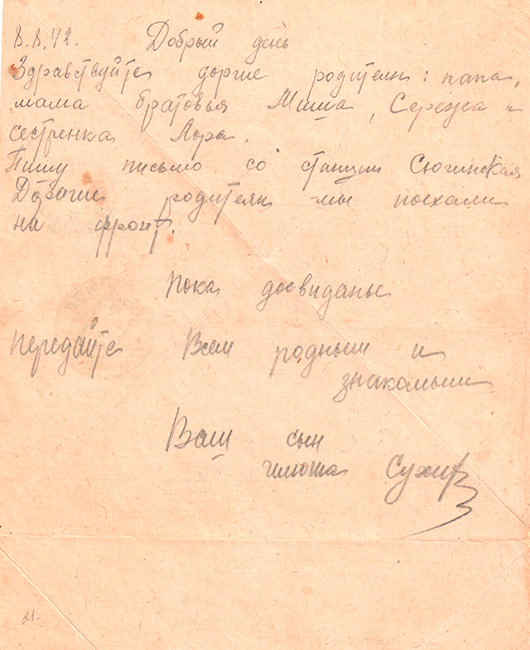 8.8.42. Добрый день
Здравствуйте доргие родители: папа,
мама братовья Миша, Сережа и
сестренка Лора.
Пишу письмо со станции Сюгинская
Дорогие родители мы поехали
на фронт.
Пока досвиданье
передайте Всем родным и
знакомым
Ваш сын
21.